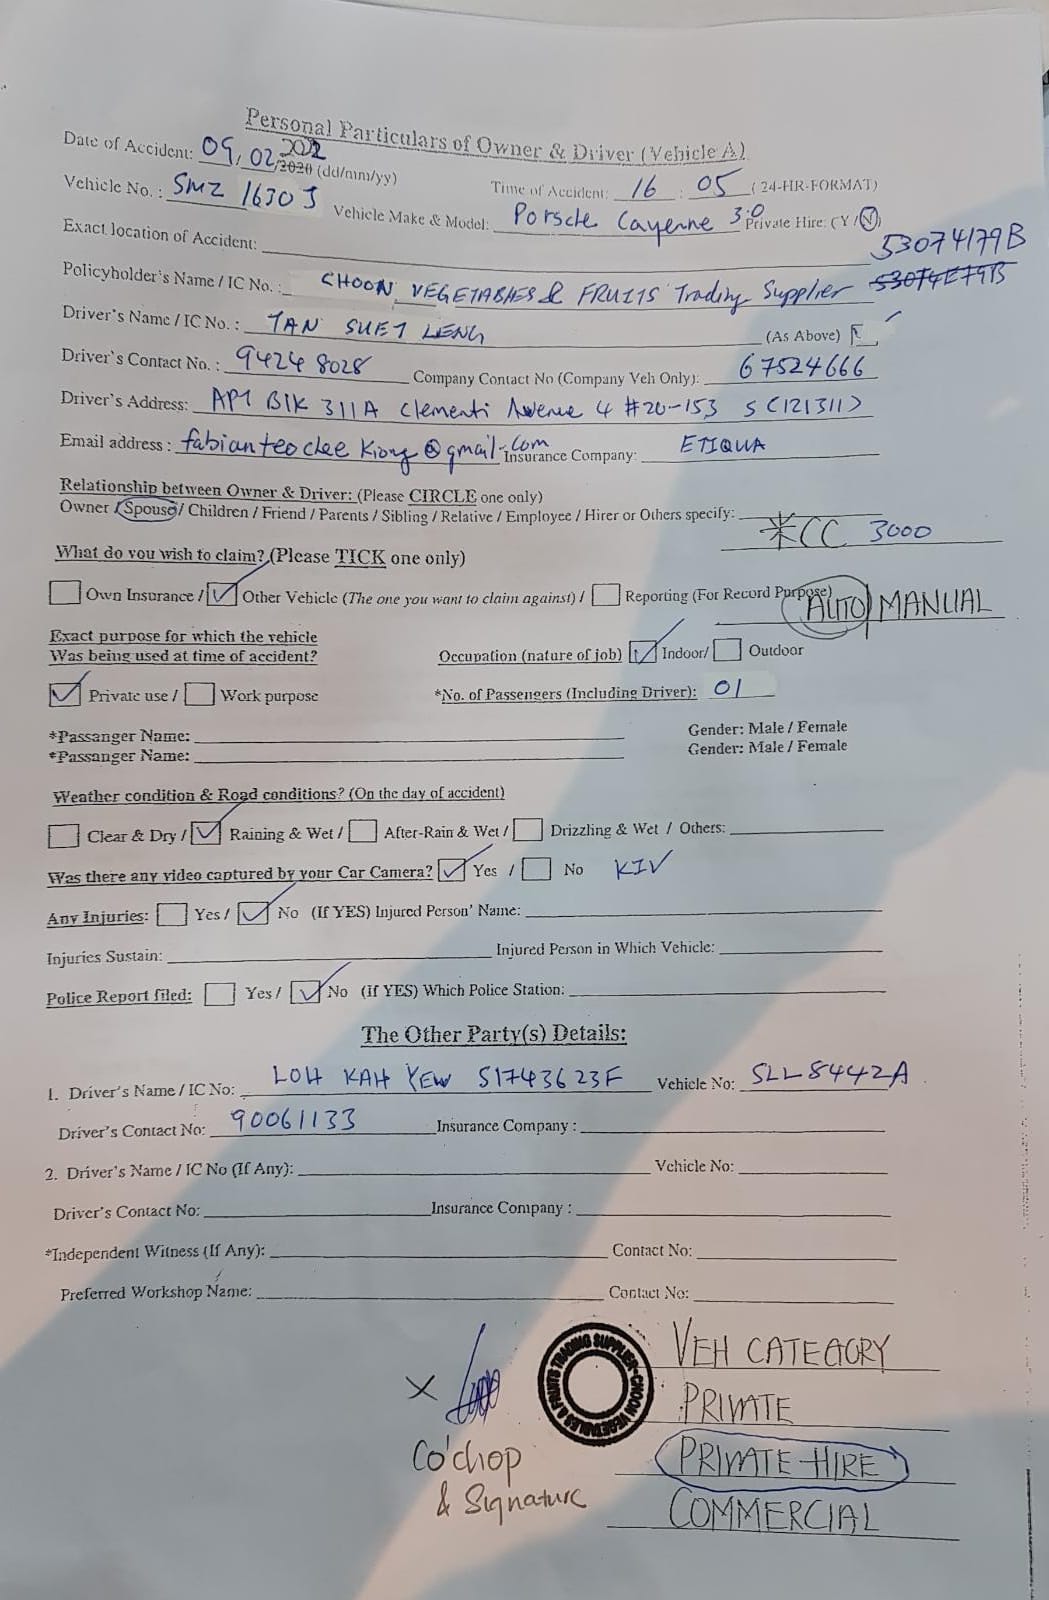 Personal Particulars of Owner & Driver (Vehicle A)
Date of Accident: 09, 02, 2022 2020 (dd/mm/yy) Time of Accident: 16 : 05 (24-HR-FORMAT)
Vehicle No. : SMZ 1630J Vehicle Make & Model: Porsche Cayenne 3.0 Private Hire: (Y / N)
Exact location of Accident:
53074179B
Policyholder's Name / IC No. : CHOON VEGETABLES & FRUITS Trading Supplier
Driver's Name / IC No. : TAN SUET LENG (As Above)
Driver's Contact No. : 94248028 Company Contact No (Company Veh Only): 67524666
Driver's Address: APT BLK 311A Clementi Avenue 4 #20-153 S(121311)
Email address : fabianteocheekiong@gmail.com Insurance Company: ETIQUA
Relationship between Owner & Driver: (Please CIRCLE one only)
Owner / Spouse / Children / Friend / Parents / Sibling / Relative / Employee / Hirer or Others specify:
CC 3000
What do you wish to claim? (Please TICK one only)
Own Insurance / Other Vehicle (The one you want to claim against) / Reporting (For Record Purpose)
AUTO | MANUAL
Exact purpose for which the vehicle
Was being used at time of accident? Occupation (nature of job) Indoor/ Outdoor
Private use / Work purpose *No. of Passengers (Including Driver): 01
*Passanger Name: Gender: Male / Female
*Passanger Name: Gender: Male / Female
Weather condition & Road conditions? (On the day of accident)
Clear & Dry / Raining & Wet / After-Rain & Wet / Drizzling & Wet / Others:
Was there any video captured by your Car Camera? Yes / No KIV
Any Injuries: Yes / No (If YES) Injured Person' Name:
Injuries Sustain: Injured Person in Which Vehicle:
Police Report filed: Yes / No (If YES) Which Police Station:
The Other Party(s) Details:
1. Driver's Name / IC No: LOH KAH YEW S1743623F Vehicle No: SLL8442A
Driver's Contact No: 90061133 Insurance Company :
2. Driver's Name / IC No (If Any): Vehicle No:
Driver's Contact No: Insurance Company :
*Independent Witness (If Any): Contact No:
Preferred Workshop Name: Contact No:
CHOON VEGETABLES & FRUITS TRADING SUPPLIER
X
Co'chop
& Signature
VEH CATEGORY
PRIVATE
PRIVATE HIRE
COMMERCIAL